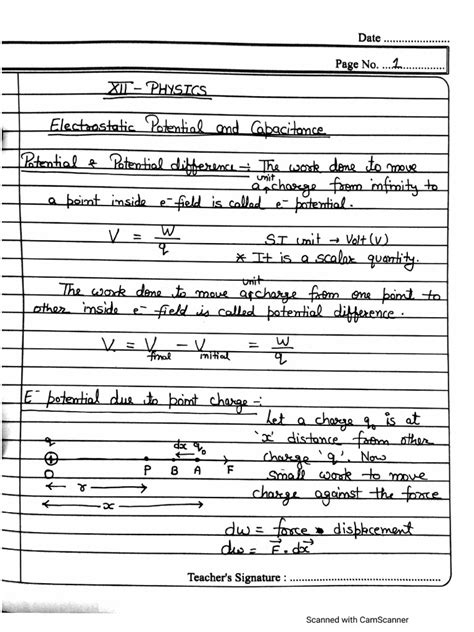 Date ................
Page No. ...1..............
XII - PHYSICS
Electrostatic Potential and Capacitance
Potential & Potential difference :- The work done to move
unit
a charge from infinity to
a point inside e⁻ field is called e⁻ potential.
V = W/q
SI unit → Volt (V)
* It is a scalar quantity.
unit
The work done to move a charge from one point to
other inside e⁻ field is called potential difference.
V = V final - V initial = W/q
E⁻ potential due to point charge :-
Let a charge q₀ is at
'x' distance from other
charge 'q'. Now
small work to move
charge against the force
q dx q₀
O P B A F
r
x
dw = force displacement
dw = F⃗ . dx⃗
Teacher's Signature : ................
Scanned with CamScanner